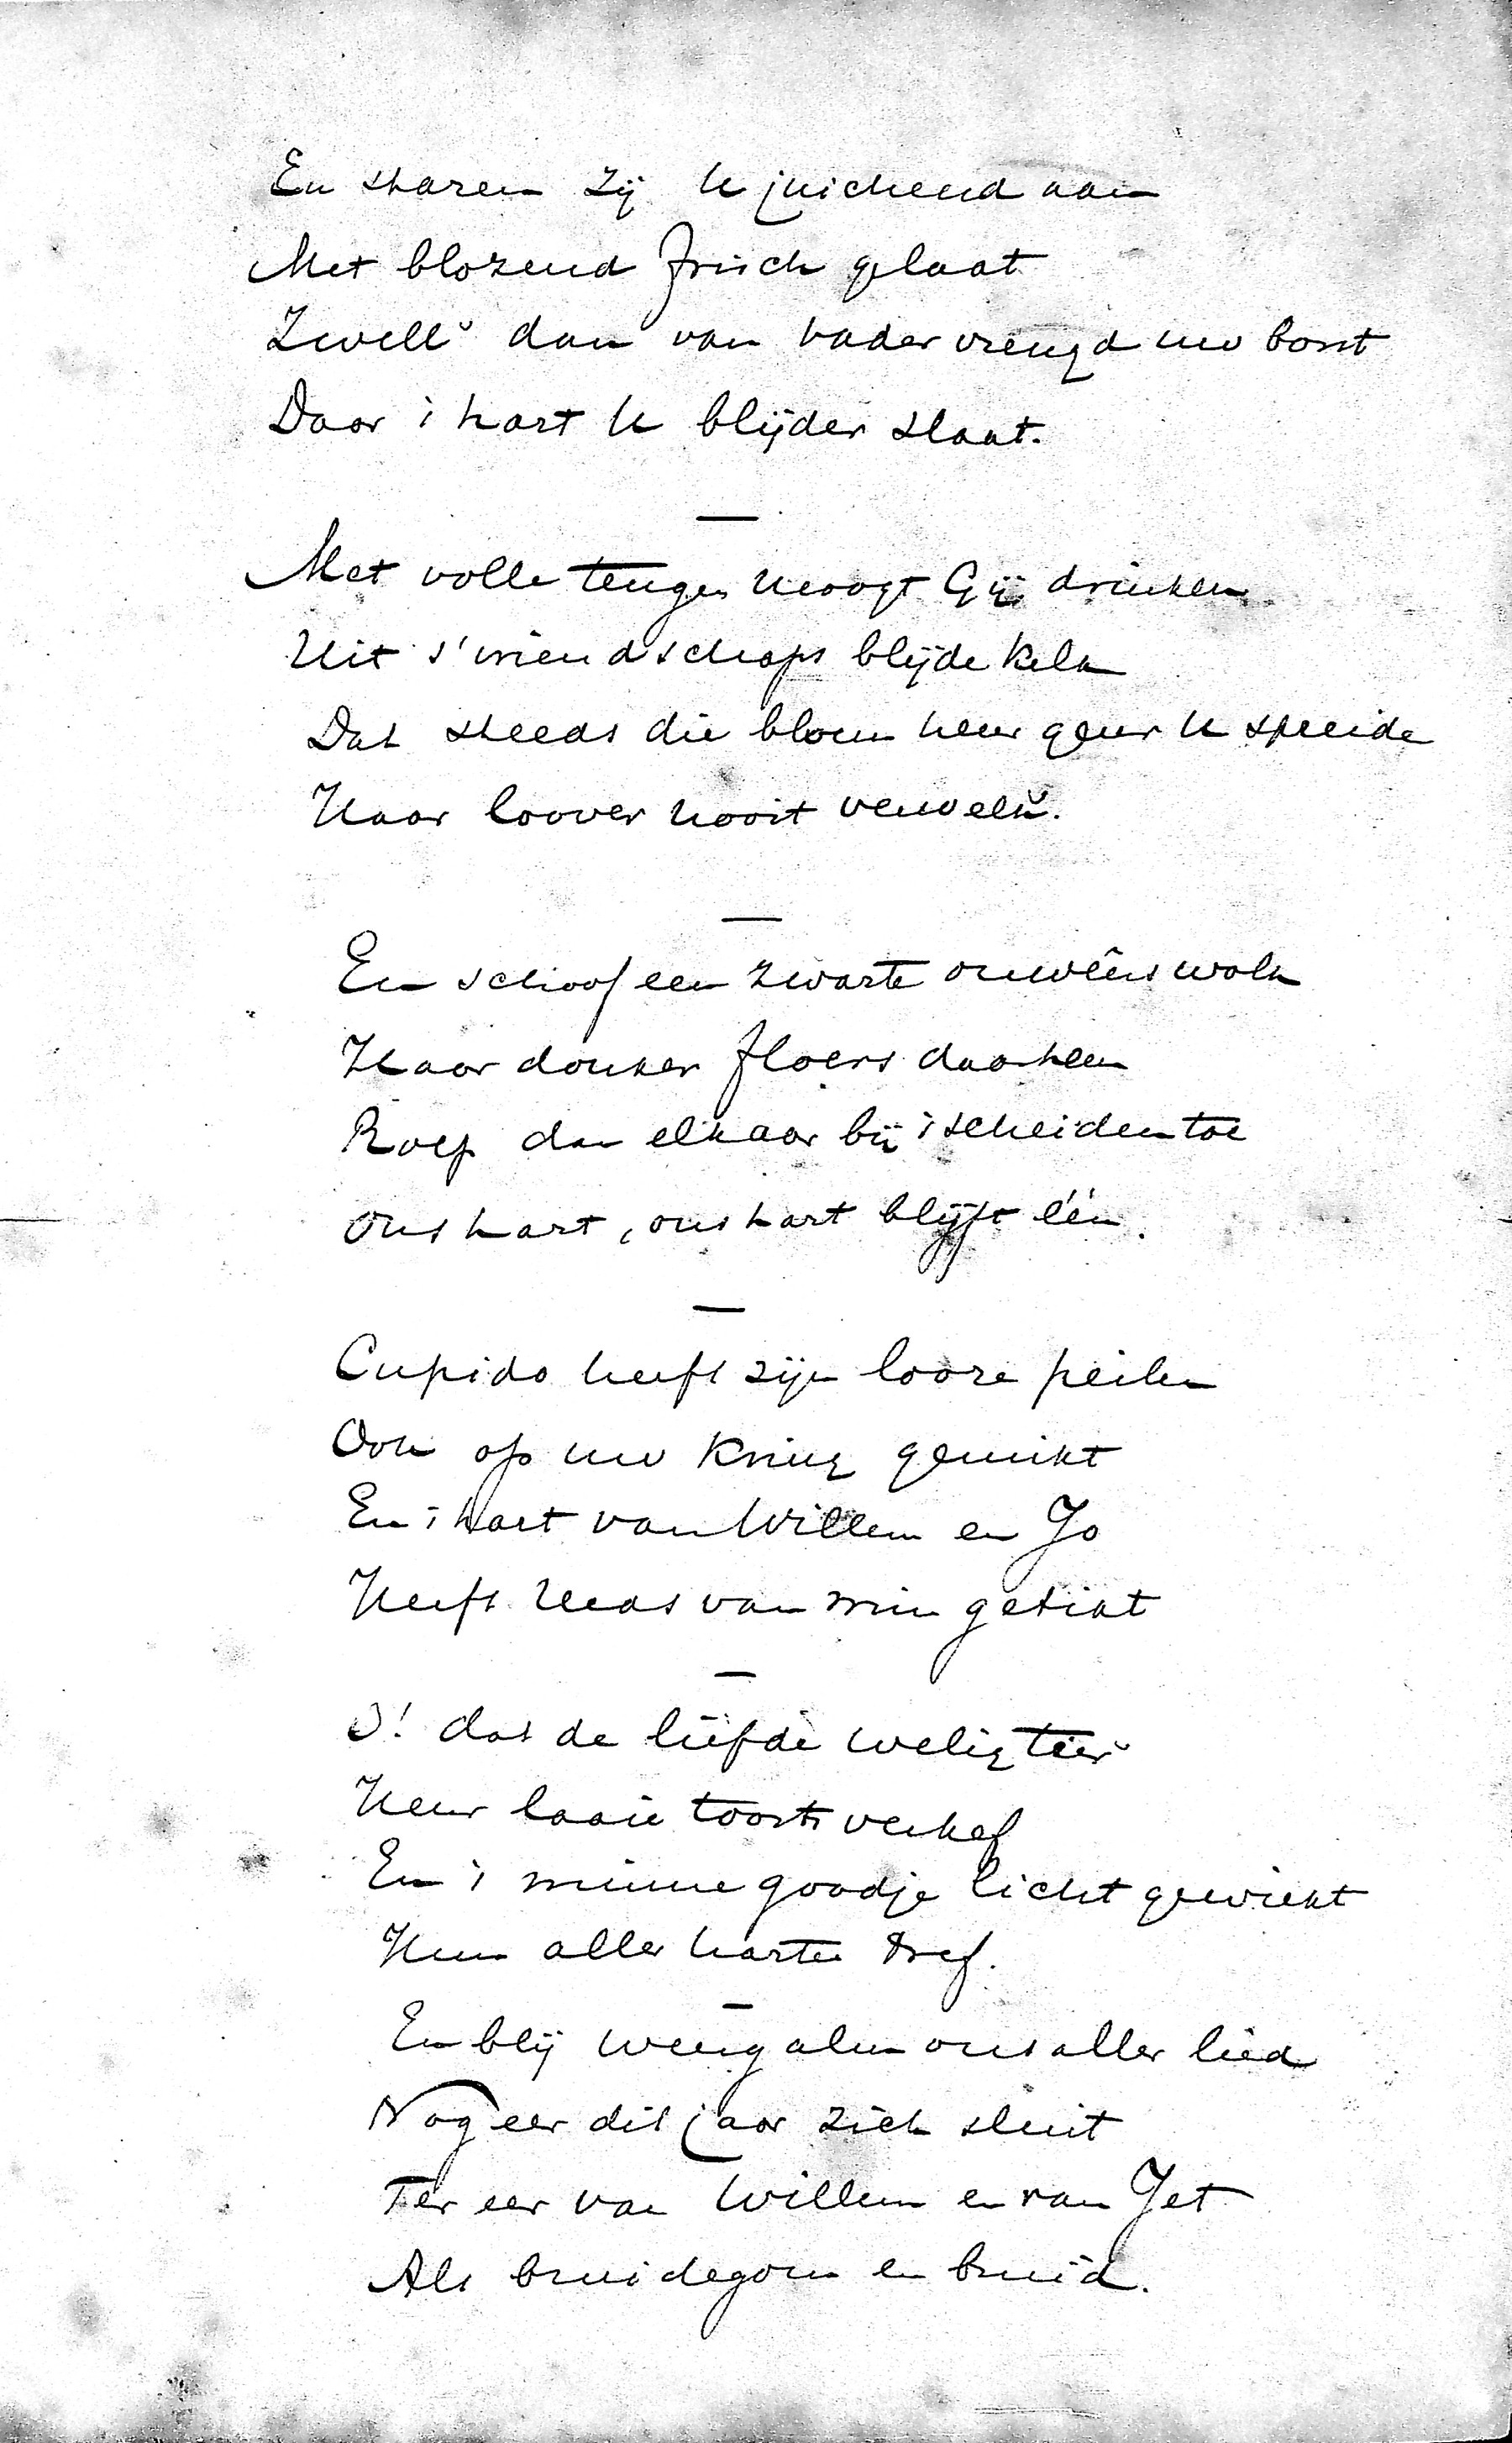 En staren zij U juichend aan
Met blozend frisch gelaat
Zwell' dan van vadervreugd uw borst
Daar 't hart U blijder slaat.
—
Met volle teugen moogt Gij drinken
Uit s'vriendschaps blijde kelk
Dat steeds die bloem heur geur U spreide
Haar loover nooit verwelk'.
—
En schoof een zwarte onweêrswolk
Haar donker floers daarheen
Roep dan elkaar bij 't scheiden toe
Ons hart, ons hart blijft één.
—
Cupido heeft zijn looze peilen
Ook op uw kring gemikt
En 't hart van Willem en Jo
Heeft reeds van min getikt
—
O! dat de liefde welig tier'
Heur laaie toorts verhef
En 't minnegoodje licht gewiekt
Hun aller harten tref.
—
En blij weergalm ons aller lied
Nog eer dit jaar zich sluit
Ter eer van Willem en van Jet
Als bruidegom en bruid.